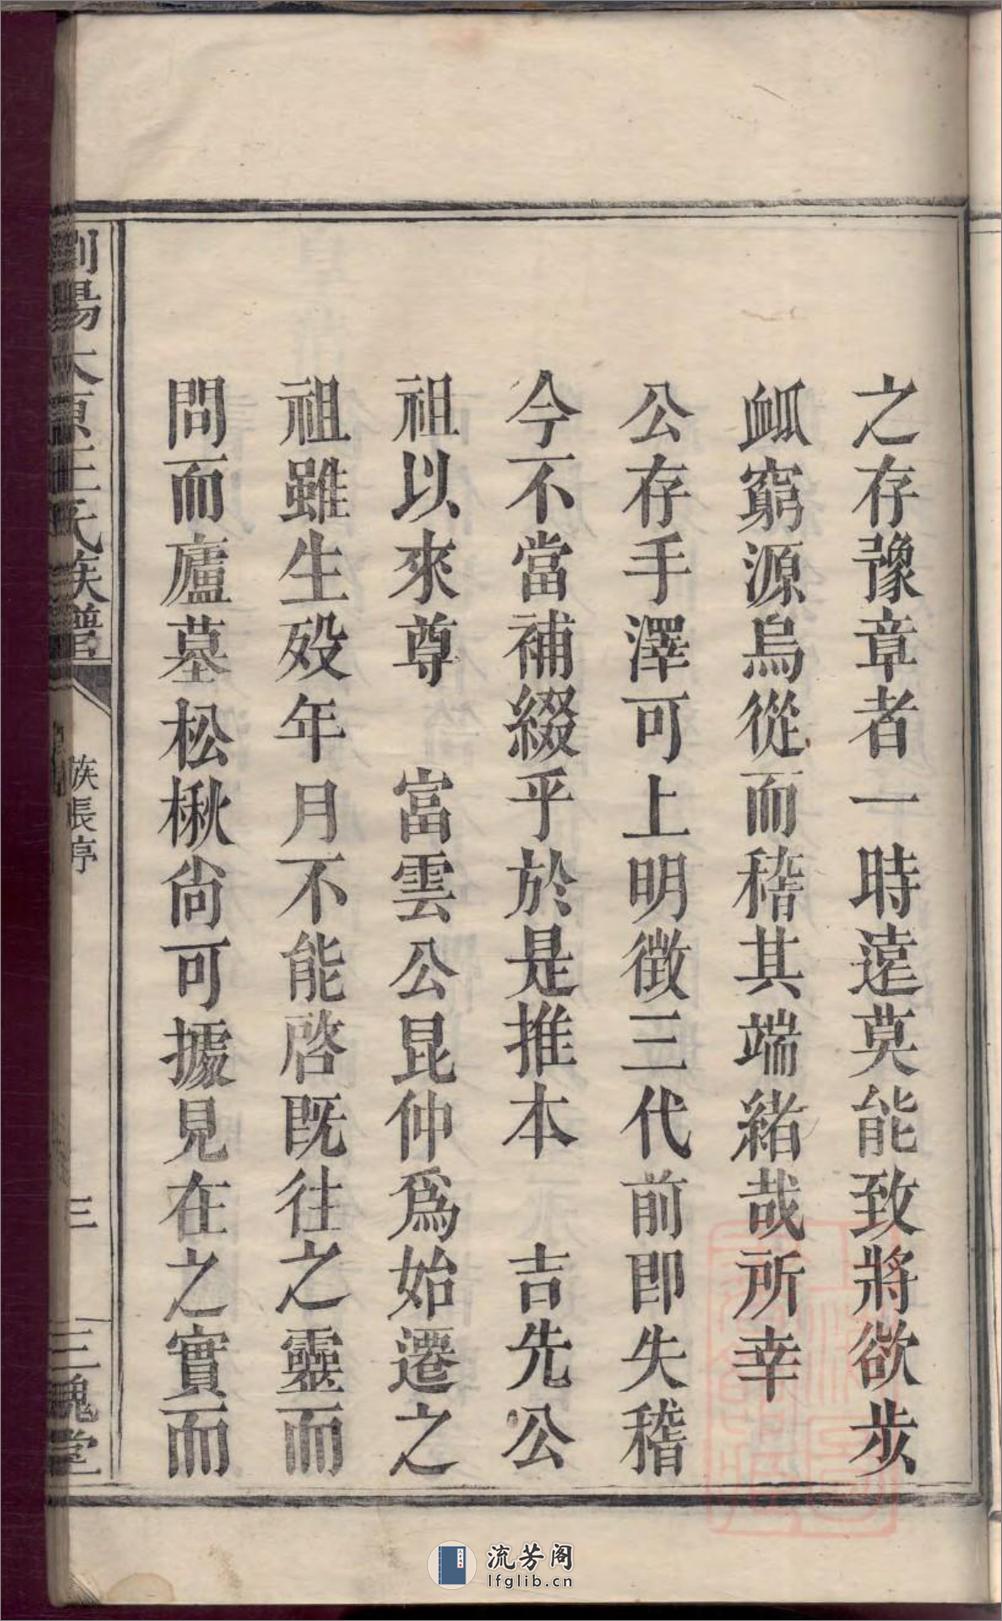 之存豫章者一時遠莫能致將欲步
衇窮源烏從而稽其端緒哉所幸
公存手澤可上明徵三代前即失稽
今不當補綴乎於是推本　吉先公
祖以來尊　富雲公昆仲爲始遷之
祖雖生殁年月不能啓既往之靈而
問而廬墓松楸尙可據見在之實而
瀏陽太原王氏族譜
族長序
三
三槐堂
流芳阁
lfglib.cn